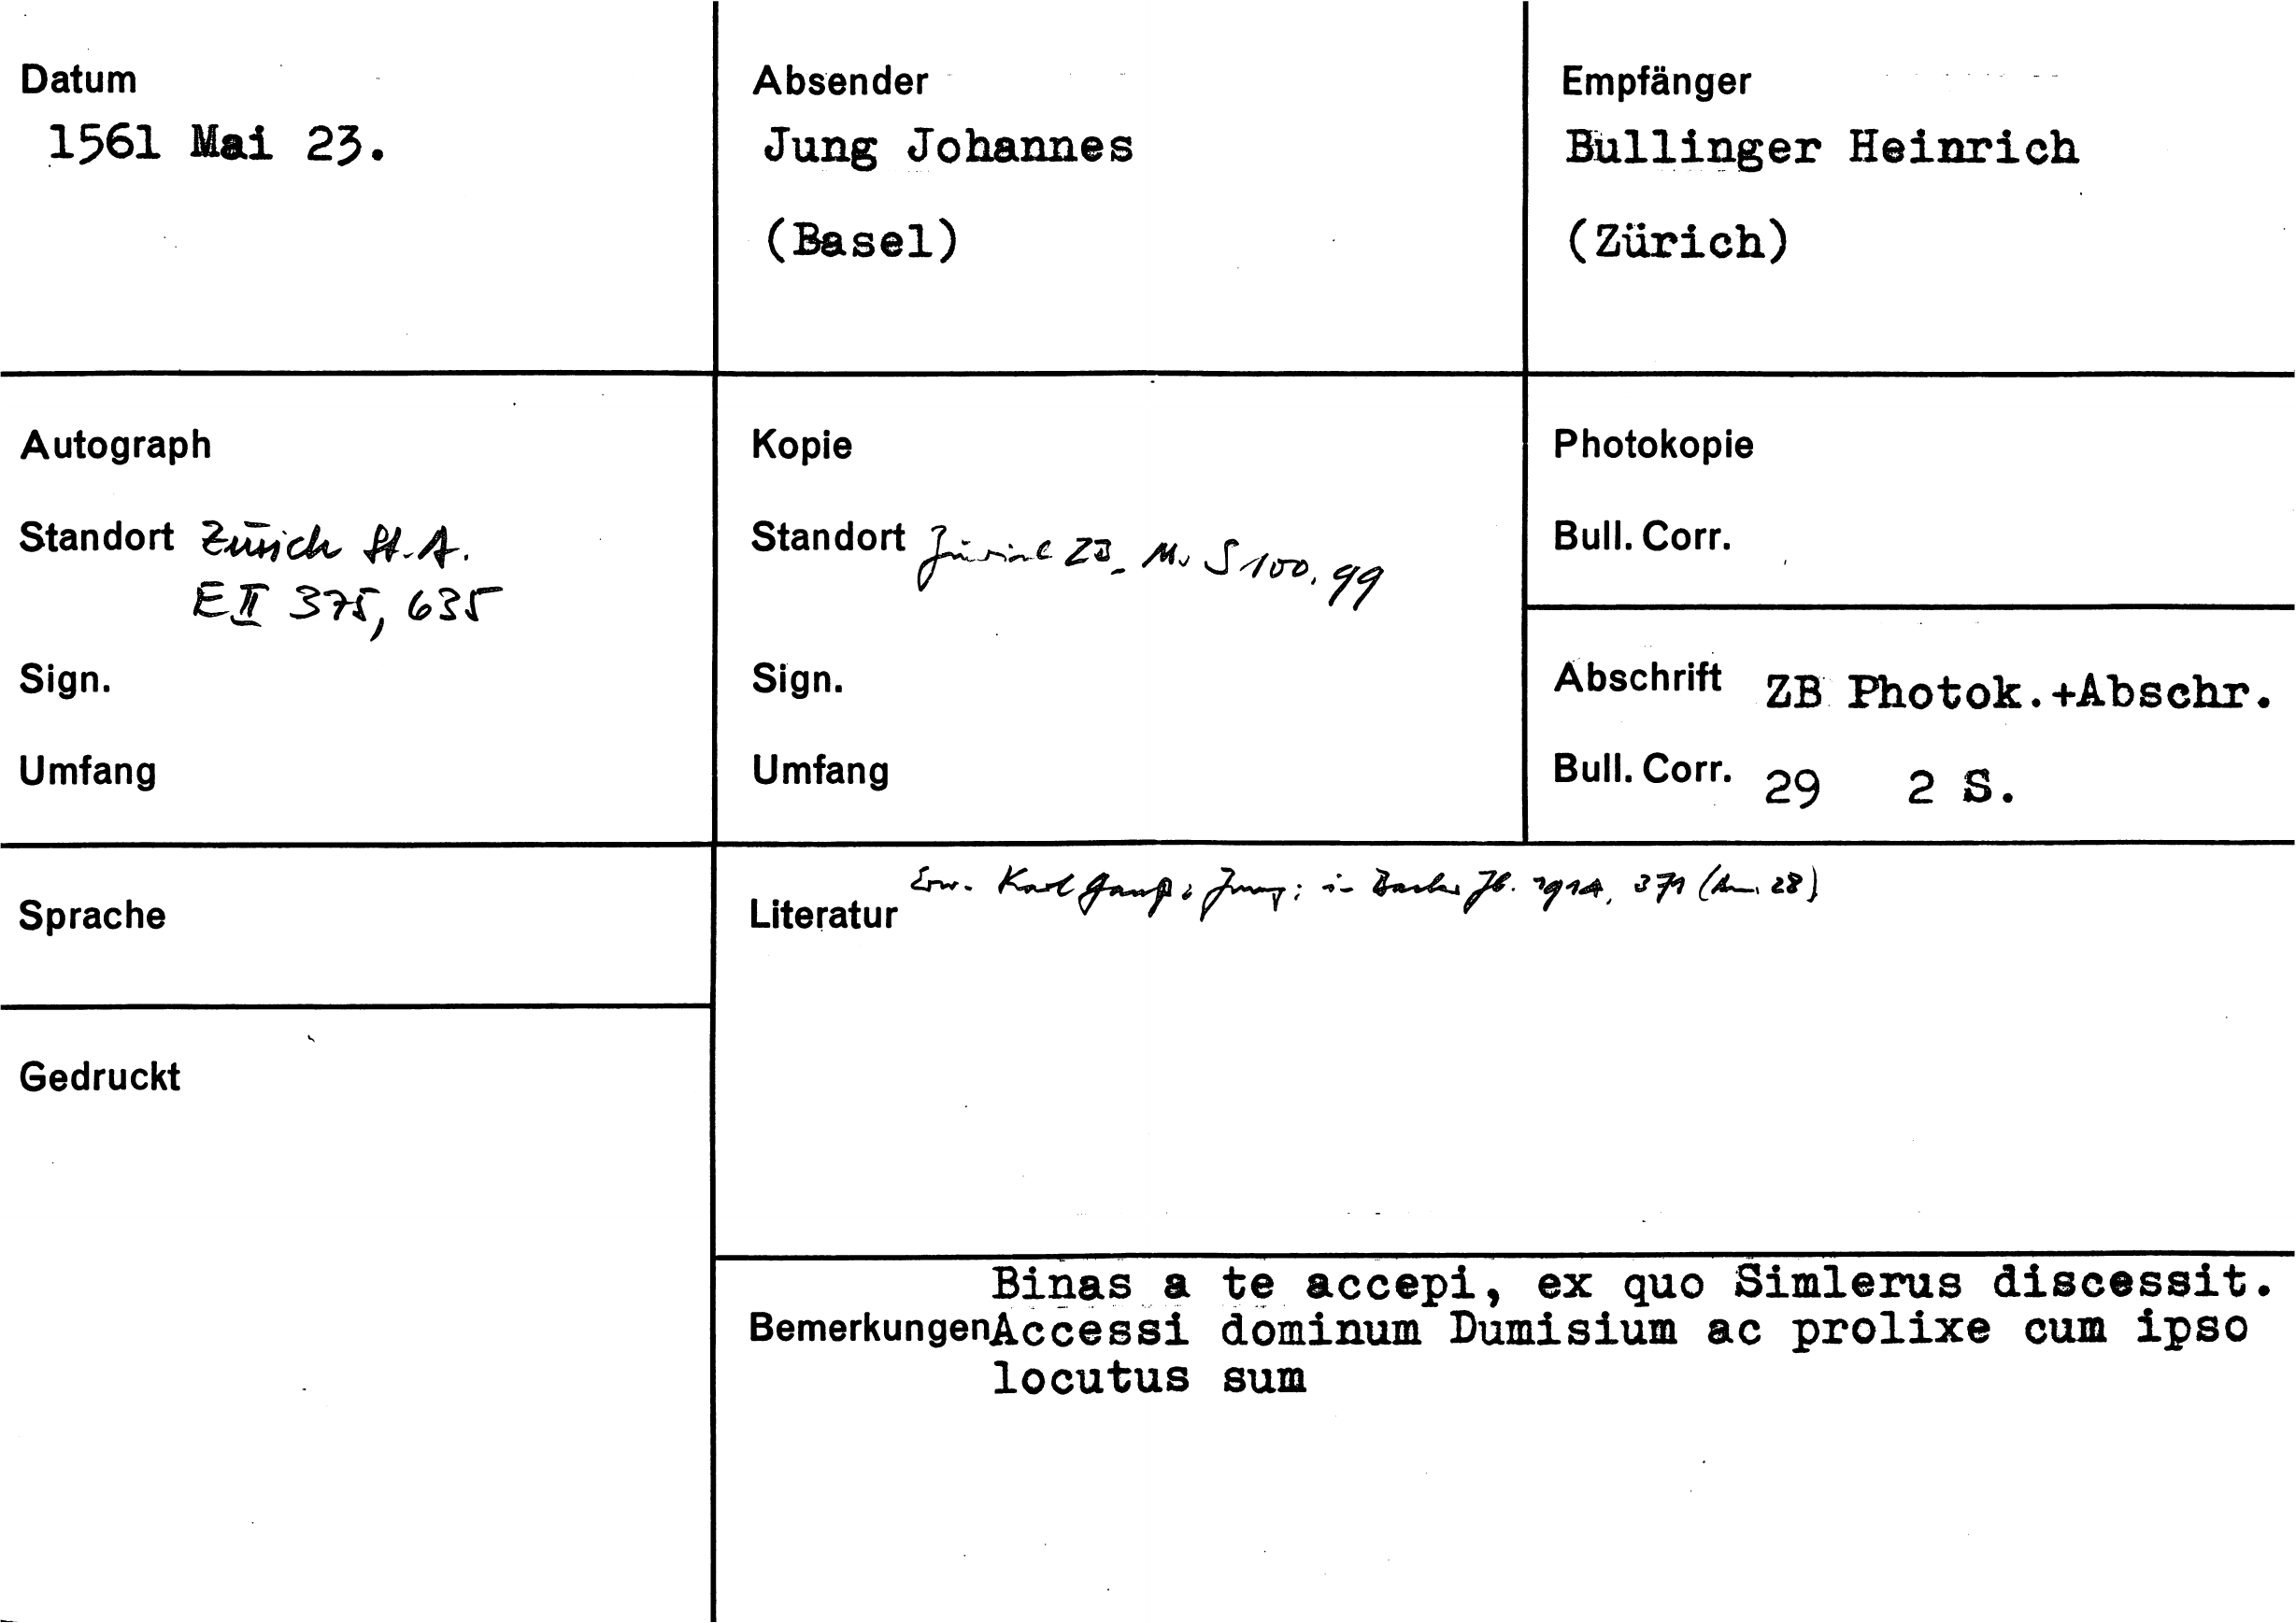 Datum
1561 Mai 23.
Absender
Jung Johannes
(Basel)
Empfänger
Bullinger Heinrich
(Zürich)
Autograph
Standort Zürich St. A.
E II 375, 635
Sign.
Umfang
Kopie
Standort Zürich ZB_ Ms S 100, 99
Sign.
Umfang
Photokopie
Bull. Corr.
Abschrift ZB Photok.+Abschr.
Bull. Corr. 29 2 S.
Sprache
Gedruckt
Literatur Erw. Karl Gauß: Jung; in Basler Jb. 1914, 371 (Anm. 28)
Binas a te accepi, ex quo Simlerus discessit.
Bemerkungen Accessi dominum Dumisium ac prolixe cum ipso
locutus sum